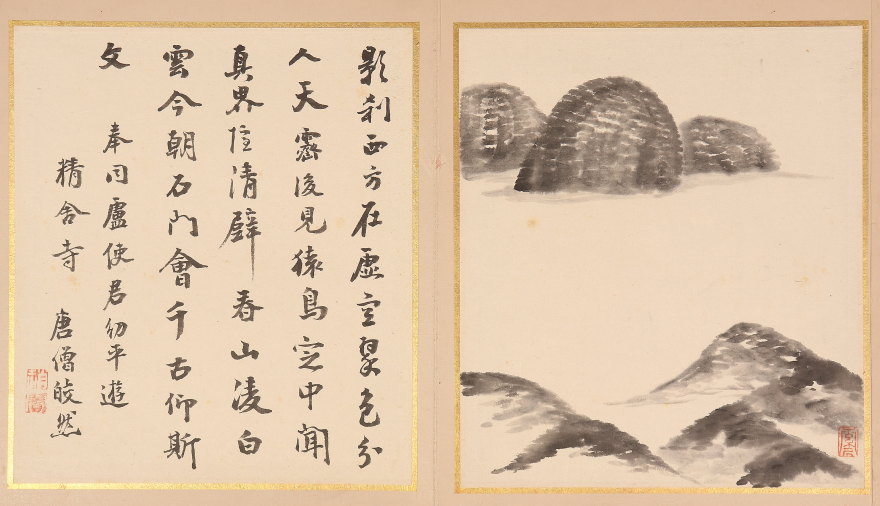 影刹西方在虛空翠色分
人天霽後見猿鳥定中聞
真界隱清壁春山淩白
雲今朝石門會千古仰斯
文 奉同盧使君幼平遊
精舍寺 唐僧皎然